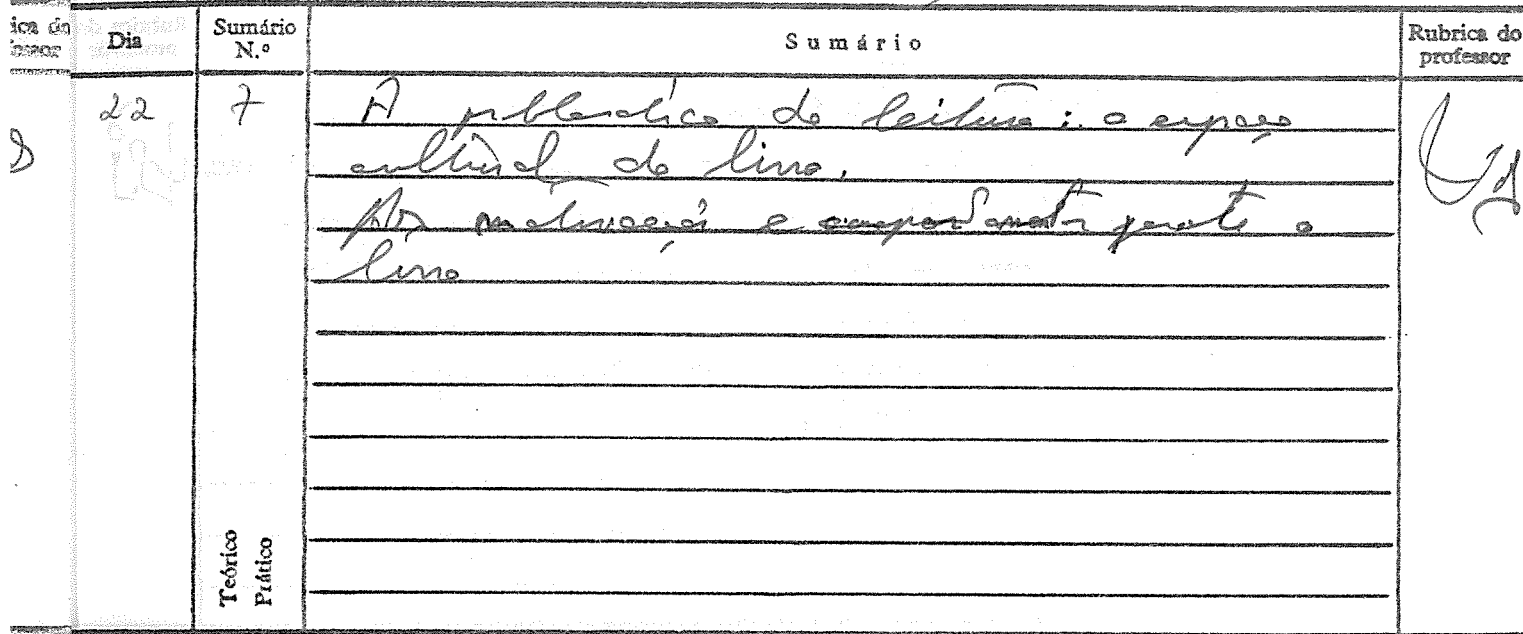 Dia Sumário N.º Sumário Rubrica do professor
22 7 A problemática da leitura: o espaço
cultural do livro.
As motivações e comportamentos perante o
livro
Teórico
Prático